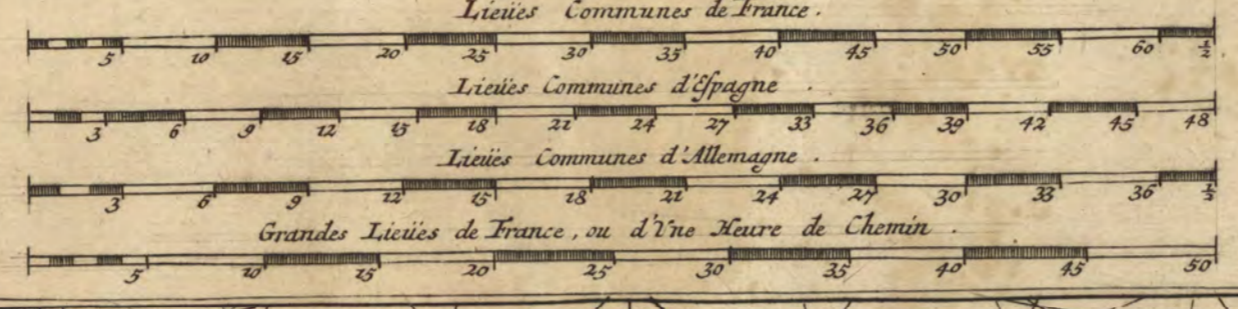 Lieües Communes de France.
5 10 15 20 25 30 35 40 45 50 55 60 ½
Lieües Communes d'Espagne.
3 6 9 12 15 18 21 24 27 33 36 39 42 45 48
Lieües Communes d'Allemagne.
3 6 9 12 15 18 21 24 27 30 33 36 ½
Grandes Lieües de France, ou d'Vne Heure de Chemin.
5 10 15 20 25 30 35 40 45 50